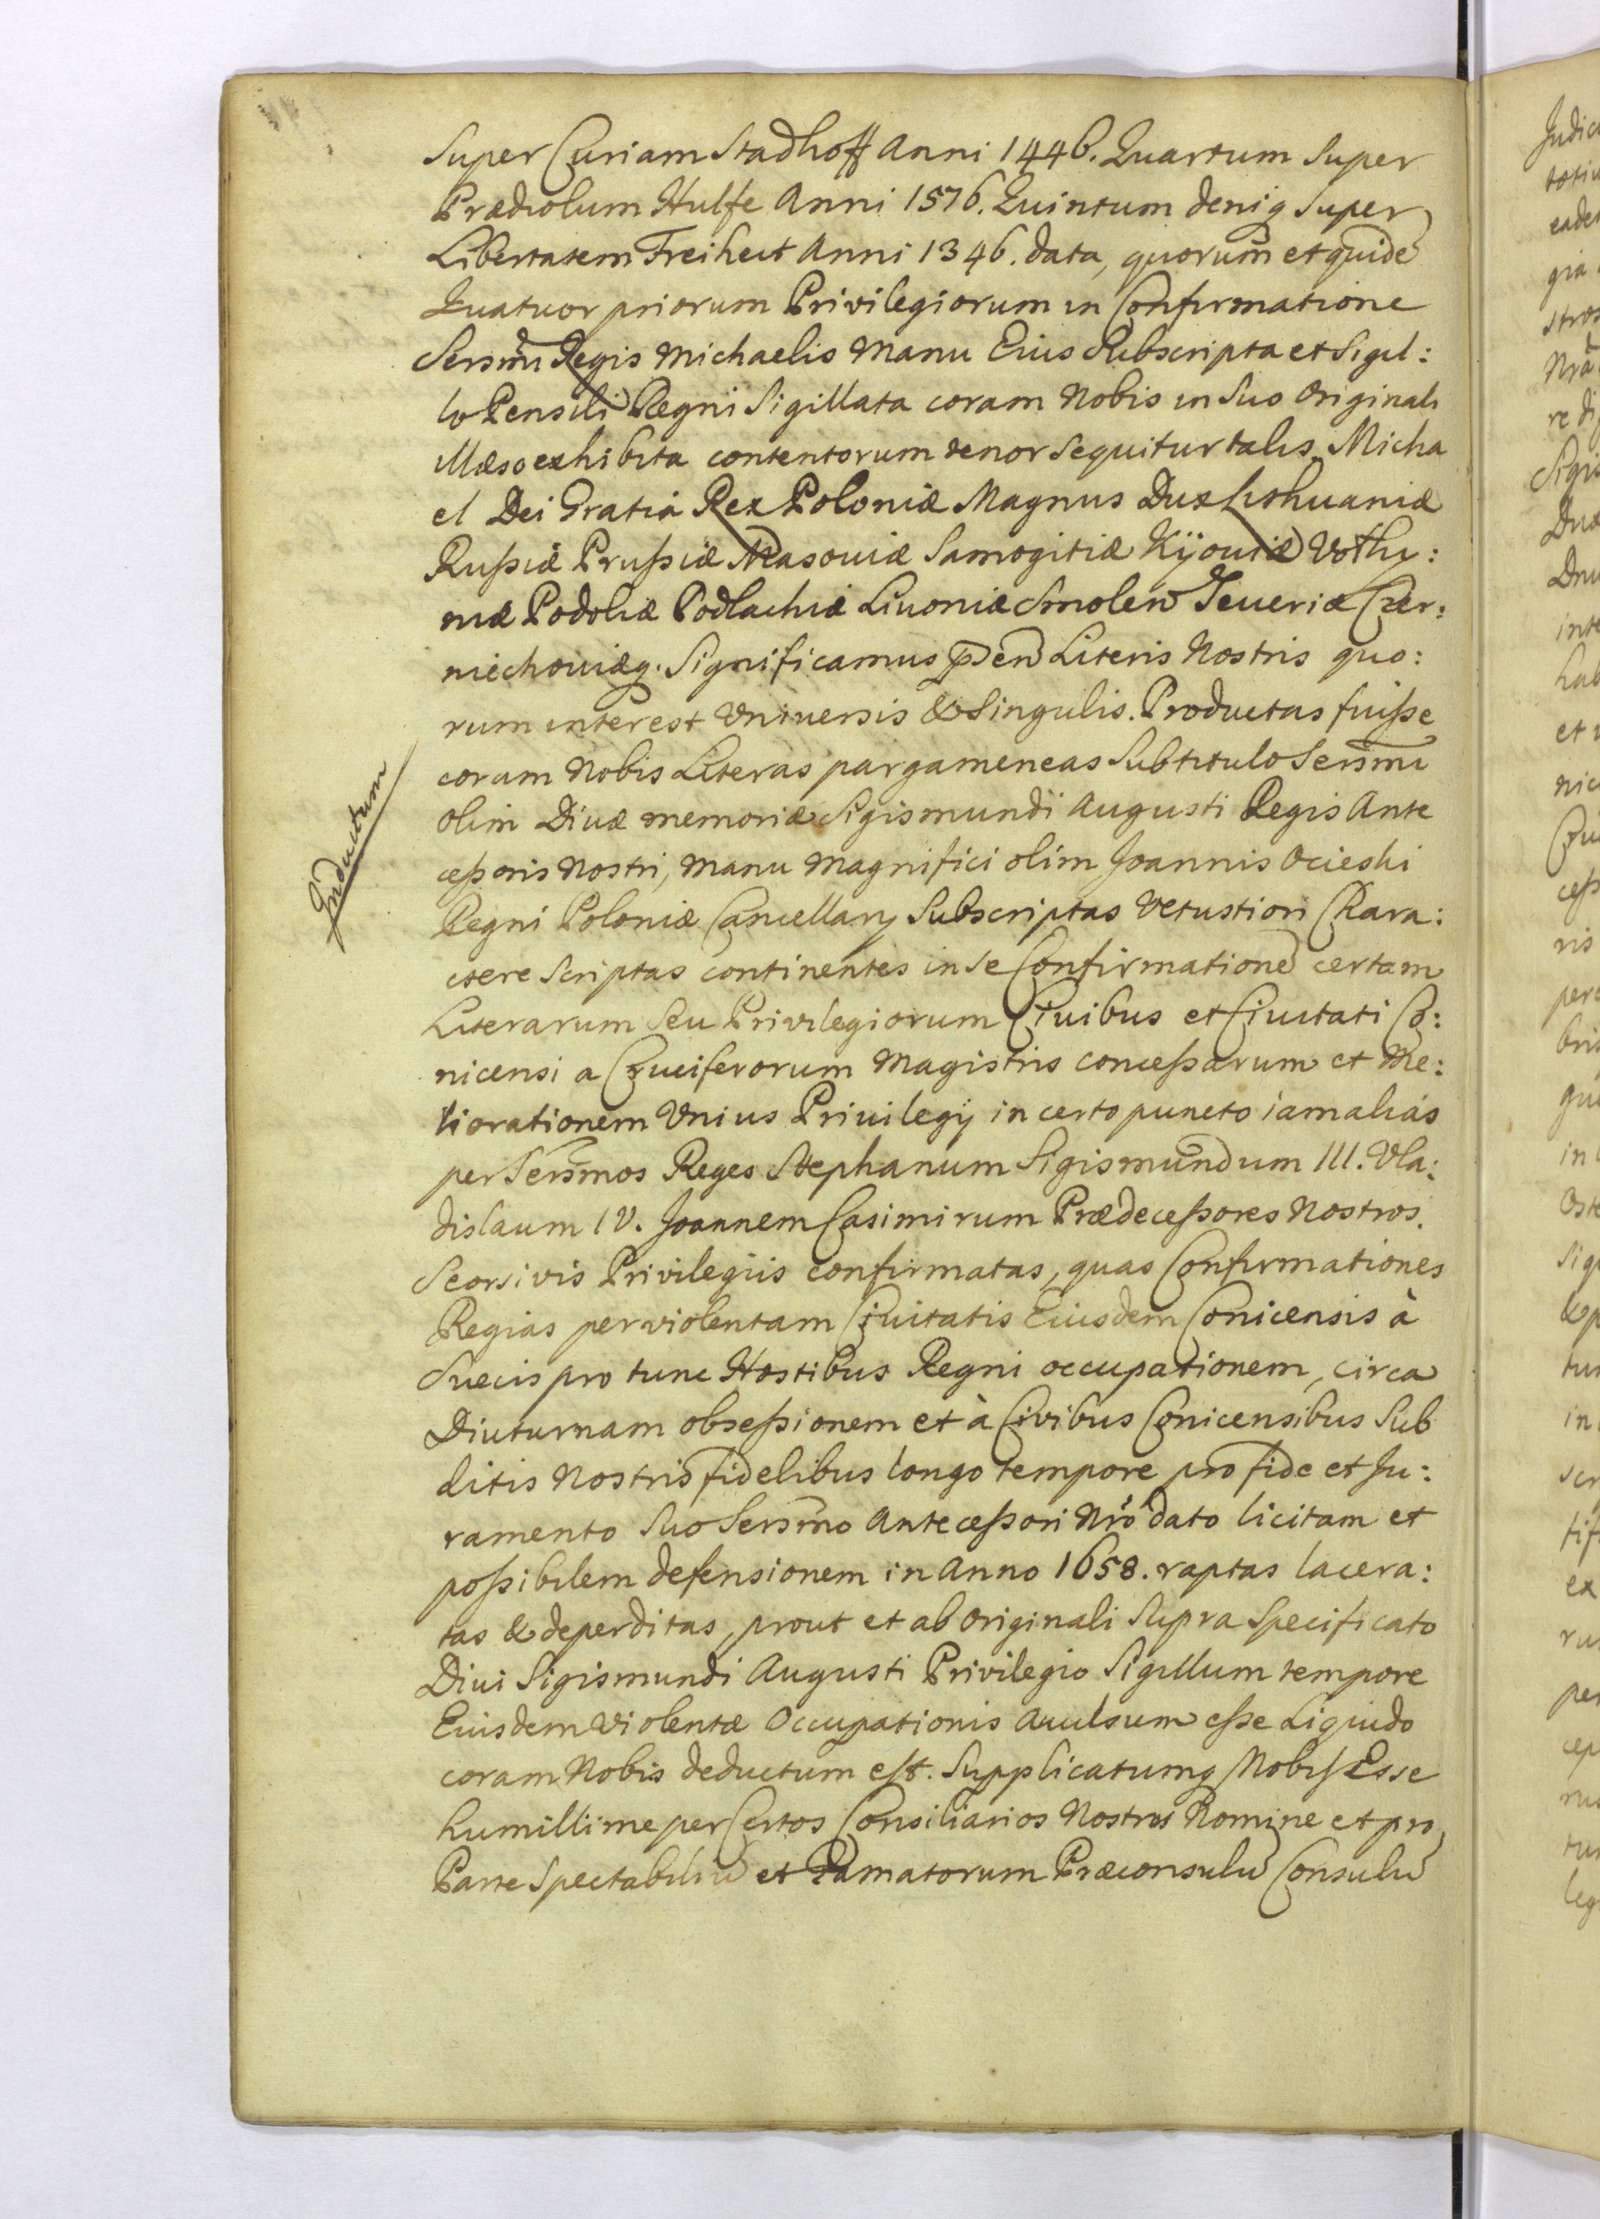 Super Curiam Stadhoff Anni 1446. Quartum Super
Prædiolum Hulfe Anni 1576. Quintum deniq Super
Libertatem Freiheit Anni 1346. data, quorum et quidẽ
Quatuor priorum Privilegiorum in Confirmatione
Sersm̃i Regis Michaelis Manu Eius Subscripta et Sigil:
lo Pensili Regni Sigillata coram Nobis in Suo Originali
illæso exhibita contentorum tenor sequitur talis. Micha
el Dei Gratiâ Rex Poloniæ Magnus Dux Lithuaniæ
Rußiæ Prußiæ Masouiæ Samogitiæ Kijouiæ Volhy:
niæ Podoliæ Podlachiæ Liuoniæ Smolen Seueriæ Czer:
niechouiæq. Significamus pñen Literis Nostris quo:
rum interest Vniuersis & Singulis. Productas fuiße
coram Nobis Literas pargameneas Sub titulo Sersm̃i
olim Diuæ memoriæ Sigismundi Augusti Regis Ante
ceßoris Nostri, Manu Magnifici olim Joannis Ocieski
Regni Poloniæ Cancellarij Subscriptas Vetustiori Chara:
ctere scriptas continentes in se Confirmationẽ certam
Literarum Seu Privilegiorum Ciuibus et Ciuitati Co:
nicensi a Cruciferorum Magistris conceßarum et Me:
liorationem Vnius Priuilegij in certo puncto iam aliàs
per Sersm̃os Reges Stephanum Sigismundum III. Vla:
dislaum IV. Joannem Casimirum Prædeceßores Nostros.
Seorsivis Privilegiis confirmatas, quas Confirmationes
Regias per violentam Ciuitatis Eiusdem Conicensis à
Suecis pro tunc Hostibus Regni occupationem, circa
Diuturnam obseßionem et à Civibus Conicensibus Sub
ditis Nostris fidelibus longo tempore pro fide et Ju:
ramento Suo Sersm̃o Anteceßori Nrõ dato licitam et
poßibilem defensionem in Anno 1658. raptas lacera:
tas & deperditas, prout et ab Originali Supra Specificato
Diui Sigismundi Augusti Privilegio Sigillum tempore
Eiusdem Violentæ Occupationis Auulsum eße Liquido
coram Nobis deductum est. Supplicatumq Nobis Esse
humillime per Certos Consiliarios Nostros Nomine et pro
Parte Spectabiliũ et Famatorum Præconsulũ Consulũ
Inductum